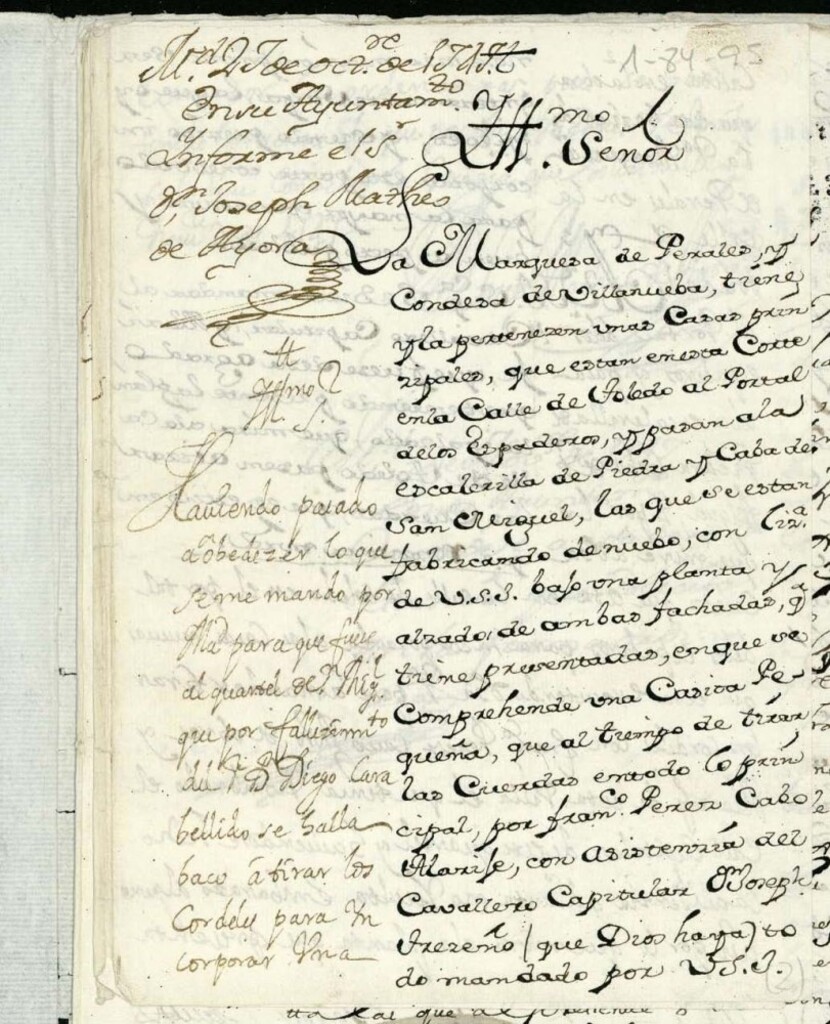 1-84-95
M.d 27 de oct.re de 1747
En su Ayuntam.to
Informe el S.r
D.n Joseph Matheo
de Ayora
Yll.mo Señor
La Marquesa de Perales, y
Condesa de Villanueba, tiene
y la pertenezen unas Casas prin
zipales, que estan en esta Corte
en la Calle de Toledo al Portal
de los Espaderos, y pasan a la
escalerilla de Piedra y Caba de
San Miguel, las que se estan
fabricando de nuebo, con liz.a
de V.S.I. bajo una planta y
alzado de ambas fachadas, q.e
tiene presentadas, en que se
Comprehende una Casita Pe-
queña, que al tiempo de tirar
las Cuerdas en todo lo prin
cipal, por fran.co Perez Cabo
Alarife, con asistenzia del
Cavallero Capitular D.n Joseph
Trezeño (que Dios haya) to
do mandado por V.S.I.
Yll.mo S.r
Haviendo pasado
a obedezer lo que
se me mando por
Md para que fuese
al quartel de S.n Mig.l
que por fallezim.to
del S.r D. Diego Cara
bellido se halla
baco a tirar los
Cordeles para In
corporar Una
(2)